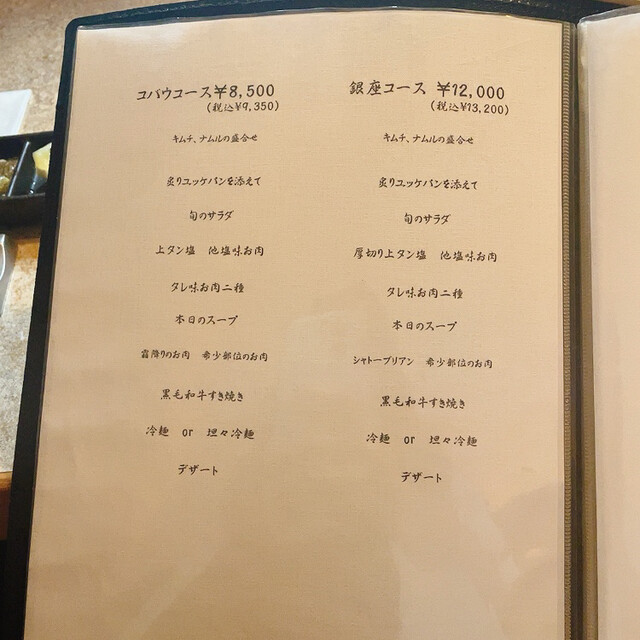 コバウコース¥8,500
(税込¥9,350)
キムチ、ナムルの盛合せ
炙りユッケパンを添えて
旬のサラダ
上タン塩 他塩味お肉
タレ味お肉二種
本日のスープ
霜降りのお肉 希少部位のお肉
黒毛和牛すき焼き
冷麺 or 坦々冷麺
デザート
銀座コース ¥12,000
(税込¥13,200)
キムチ、ナムルの盛合せ
炙りユッケパンを添えて
旬のサラダ
厚切り上タン塩 他塩味お肉
タレ味お肉二種
本日のスープ
シャトーブリアン 希少部位のお肉
黒毛和牛すき焼き
冷麺 or 坦々冷麺
デザート